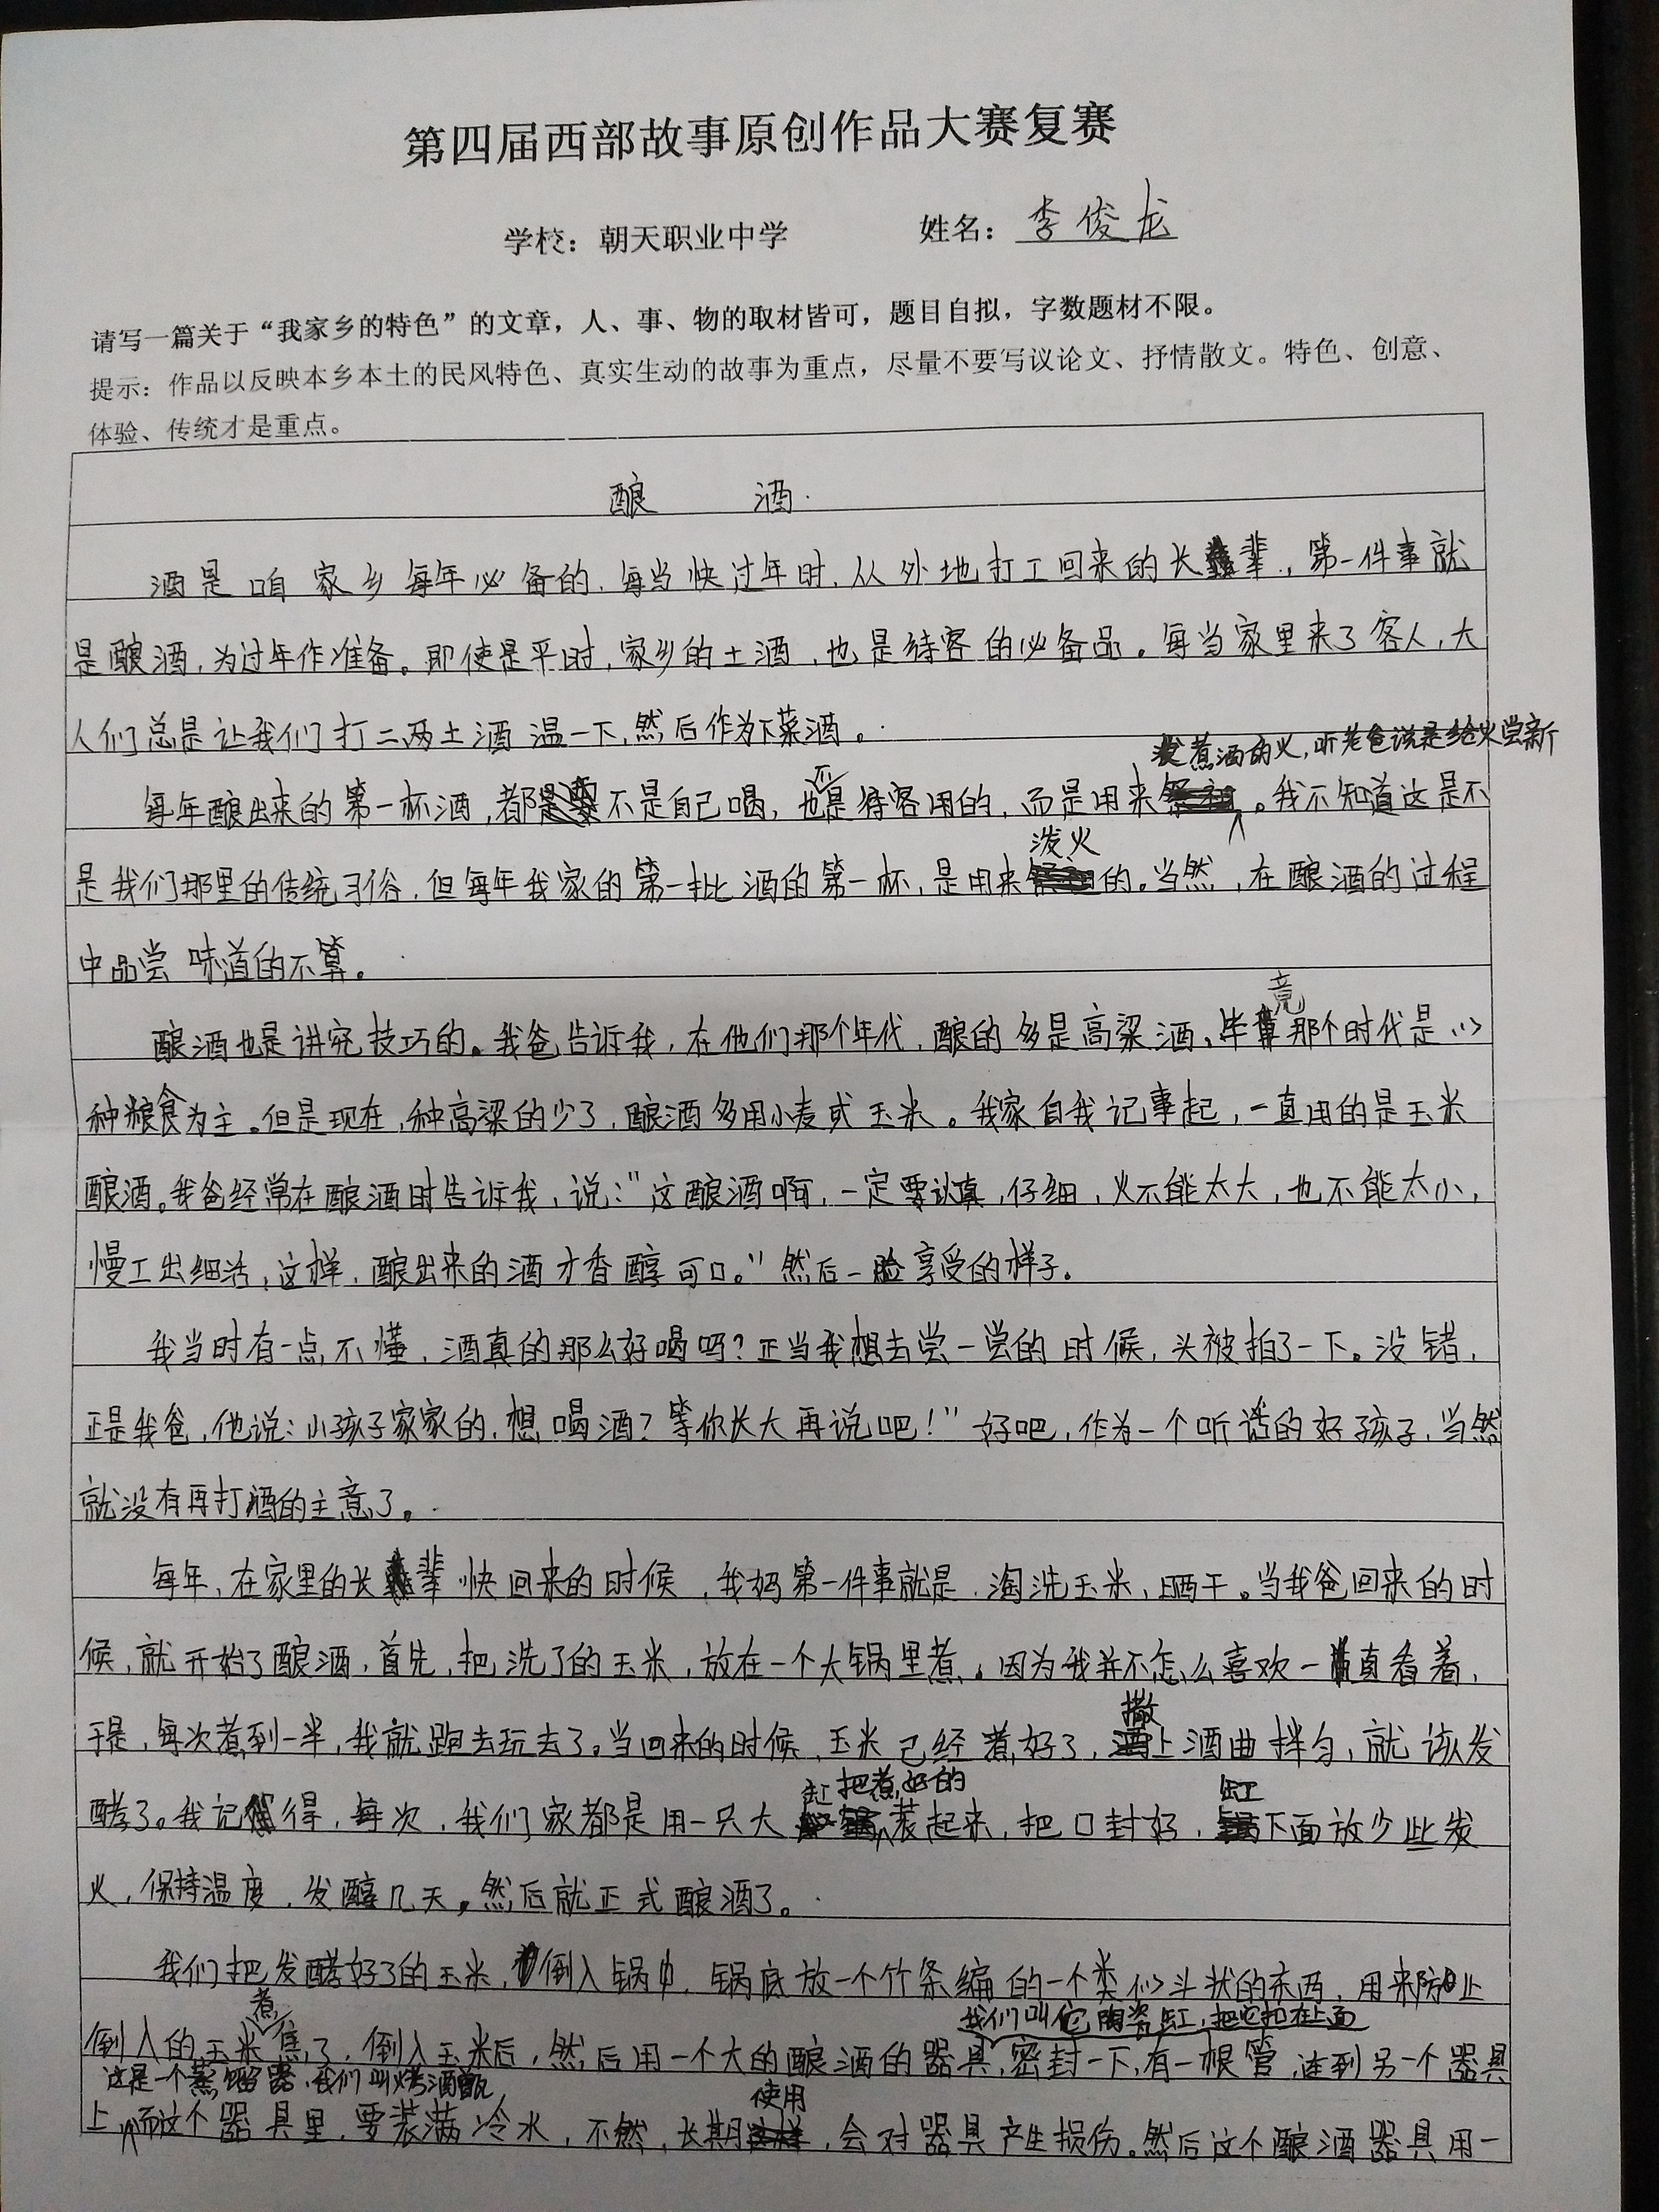 第四届西部故事原创作品大赛复赛
学校：朝天职业中学 姓名：李俊龙
请写一篇关于“我家乡的特色”的文章，人、事、物的取材皆可，题目自拟，字数题材不限。
提示：作品以反映本乡本土的民风特色、真实生动的故事为重点，尽量不要写议论文、抒情散文。特色、创意、
体验、传统才是重点。
酿 酒
酒是咱家乡每年必备的，每当快过年时，从外地打工回来的长辈，第一件事就
是酿酒，为过年作准备。即使是平时，家乡的土酒，也是待客的必备品。每当家里来了客人，大
人们总是让我们打二两土酒温一下，然后作为下菜酒。
煮酒的火，听老爸说是给火尝新
每年酿出来的第一杯酒，都不是自己喝，也不是待客用的，而是用来。我不知道这是不
泼火
是我们那里的传统习俗，但每年我家的第一批酒的第一杯，是用来的。当然，在酿酒的过程
中品尝味道的不算。
竟
酿酒也是讲究技巧的。我爸告诉我，在他们那个年代，酿的多是高梁酒，毕那个时代是以
种粮食为主。但是现在，种高梁的少了，酿酒多用小麦或玉米。我家自我记事起，一直用的是玉米
酿酒。我爸经常在酿酒时告诉我，说：“这酿酒啊，一定要认真，仔细，火不能太大，也不能太小，
慢工出细活，这样，酿出来的酒才香醇可口。”然后一脸享受的样子。
我当时有一点不懂，酒真的那么好喝吗？正当我想去尝一尝的时候，头被拍了一下。没错，
正是我爸，他说：小孩子家家的，想喝酒？等你长大再说吧！”好吧，作为一个听话的好孩子，当然
就没有再打酒的主意了。
每年，在家里的长辈快回来的时候，我妈第一件事就是，淘洗玉米，晒干。当我爸回来的时
候，就开始了酿酒，首先，把洗了的玉米，放在一个大锅里煮。因为我并不怎么喜欢一直看着，
撒
于是，每次煮到一半，我就跑去玩去了。当回来的时候，玉米已经煮好了，上酒曲拌匀，就该发
缸 把煮好的 缸
酵了。我记得，每次，我们家都是用一只大装起来，把口封好，下面放少些炭
火，保持温度，发醇几天。然后就正式酿酒了。
我们把发酵好了的玉米，倒入锅中，锅底放一个竹条编的一个类似斗状的东西，用来防止
煮 我们叫它陶瓷缸，把它扣在上面
倒入的玉米焦了，倒入玉米后，然后用一个大的酿酒的器具，密封一下，有一根管，连到另一个器具
这是一个蒸馏器，我们叫烤酒甑， 使用
上，而这个器具里，要装满冷水，不然，长期，会对器具产生损伤。然后这个酿酒器具用一